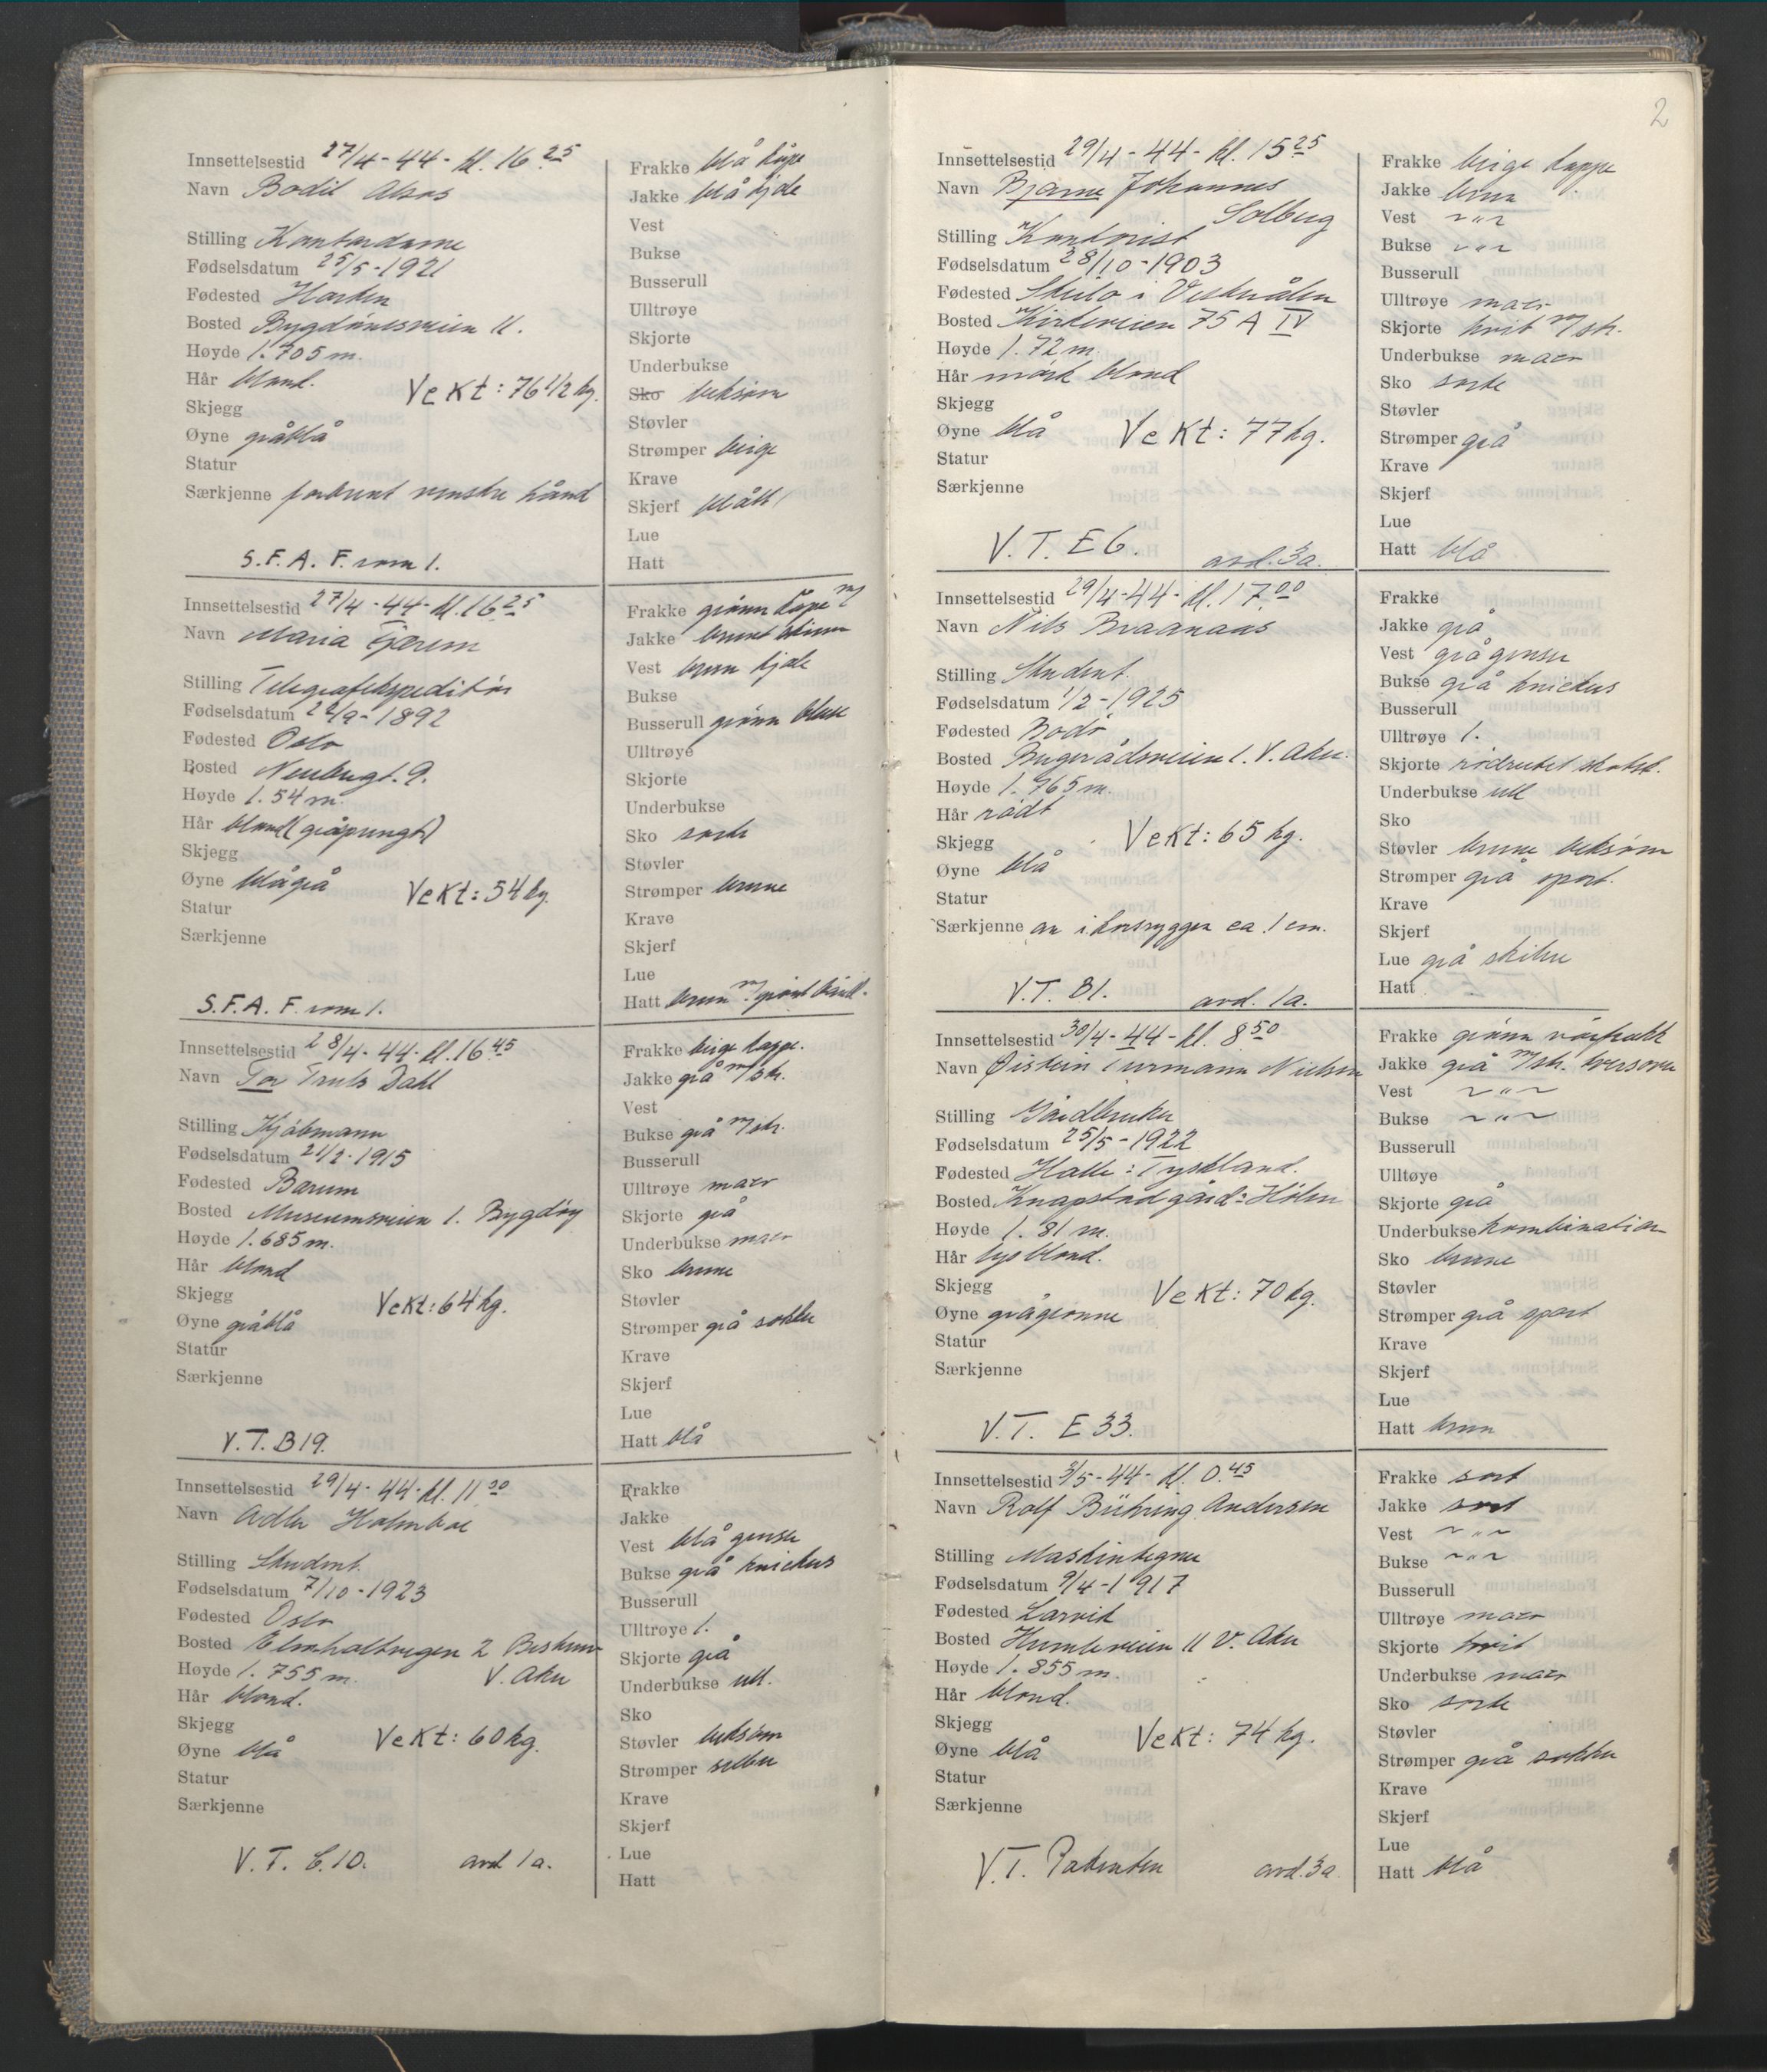 2
Innsettelsestid 27/4-44- kl. 16 25
Navn Bodil Alsos
Stilling Kontordame
Fødselsdatum 25/5-1921
Fødested
Bosted Bygdönesveien 11.
Høyde 1.705 m.
Hår blond. Vekt: 76 1/2 kg.
Skjegg
Øyne gråblå
Statur
Særkjenne forbrent venstre hånd
S.F.A. F. rom 1.
Frakke blå kåpe
Jakke blå kjole
Vest
Bukse
Busserull
Ulltrøye
Skjorte
Underbukse
Sko beksøm
Støvler
Strømper beige
Krave
Skjerf blått
Lue
Hatt
Innsettelsestid 27/4-44- kl. 16 25
Navn Maria
Stilling Telegrafekspeditör
Fødselsdatum 22/9-1892
Fødested Oslo
Bosted Neubergt. 9.
Høyde 1.54 m.
Hår blond (gråsprengt)
Skjegg
Øyne blågrå Vekt: 54 kg.
Statur
Særkjenne
S.F.A. F. rom 1.
Frakke grönn kåpe m/
Jakke brunt skinn
Vest brun kjole
Bukse
Busserull grönn bluse
Ulltrøye
Skjorte
Underbukse
Sko sorte
Støvler
Strømper brune
Krave
Skjerf
Lue
Hatt brun m/grönt bånd.
Innsettelsestid 28/4-44-kl. 16 45
Navn Tor Truls Dahl
Stilling Kjöbmann
Fødselsdatum 21/2-1915
Fødested Bærum
Bosted Museumsveien 1. Bygdöy
Høyde 1.685 m.
Hår blond
Skjegg Vekt: 64 kg.
Øyne gråblå
Statur
Særkjenne
V.T. B19.
Frakke beige kappe.
Jakke grå m/str.
Vest
Bukse grå m/str.
Busserull
Ulltrøye maco
Skjorte grå
Underbukse maco
Sko brune
Støvler
Strømper grå sokker
Krave
Skjerf
Lue
Hatt blå
Innsettelsestid 29/4-44-kl. 11 30
Navn Adler Holmboe
Stilling Student.
Fødselsdatum 7/10-1923
Fødested Oslo
Bosted Elmholtvegen 2 Bestum
Høyde 1.755 m. V. Aker
Hår blond.
Skjegg
Øyne blå Vekt: 60 kg.
Statur
Særkjenne
V.T. C.10. avd 1a.
Frakke
Jakke
Vest blå genser
Bukse grå knickers
Busserull
Ulltrøye 1.
Skjorte grå
Underbukse ull.
Sko
Støvler beksøm
Strømper selbu
Krave
Skjerf
Lue
Hatt
Innsettelsestid 29/4-44- kl. 15 25
Navn Bjarne Johannes
Solberg
Stilling Kontorist
Fødselsdatum 28/10-1903
Fødested i Vesterålen
Bosted Kirkeveien 75 A IV
Høyde 1.72 m.
Hår mörk blond
Skjegg
Øyne blå Vekt: 77 kg.
Statur
Særkjenne
V.T. E6. avd. 3a.
Frakke beige kappe
Jakke brun
Vest ~"~
Bukse ~"~
Busserull
Ulltrøye maco
Skjorte hvit m/str.
Underbukse maco
Sko sorte
Støvler
Strømper grå
Krave
Skjerf
Lue
Hatt blå
Innsettelsestid 29/4-44- kl. 17.00
Navn Nils Braanaas
Stilling Student.
Fødselsdatum 1/2-1925
Fødested Bodö
Bosted Borgerådsveien 1. V. Aker.
Høyde 1.765 m.
Hår rödt
Skjegg Vekt: 65 kg.
Øyne blå
Statur
Særkjenne arr i korsryggen ca. 1 cm.
V.T. B1. avd. 1a.
Frakke
Jakke grå
Vest grå genser
Bukse grå knickers
Busserull
Ulltrøye 1.
Skjorte rödrutet
Underbukse ull
Sko
Støvler brune beksøm
Strømper grå sport.
Krave
Skjerf
Lue grå skilue
Hatt
Innsettelsestid 30/4-44- kl. 8 50
Navn Øistein Nielsen
Stilling Gårdbruker
Fødselsdatum 25/5-1922
Fødested Halle: Tyskland.
Bosted Knapstad gård: Hölen
Høyde 1.81 m.
Hår lys blond.
Skjegg Vekt: 70 kg.
Øyne grågrønne
Statur
Særkjenne
V.T. E 33.
Frakke grönn vårfrakk
Jakke grå m/str.
Vest ~"~
Bukse ~"~
Busserull
Ulltøye
Skjorte grå
Underbukse kombination
Sko brune
Støvler
Strømper grå sport
Krave
Skjerf
Lue
Hatt brun
Innsettelsestid 3/5-44- kl. 0.45
Navn Rolf Bühring Andersen
Stilling Maskintegner
Fødselsdatum 9/4-1917
Fødested Larvik
Bosted Humleveien 11 V. Aker
Høyde 1.855 m.
Hår blond.
Skjegg
Øyne blå Vekt: 74 kg.
Statur
Særkjenne
V.T. Patenten avd. 3a
Frakke sort
Jakke sort
Vest ~"~
Bukse ~"~
Busserull
Ulltrøye maco
Skjorte hvit
Underbukse maco
Sko sorte
Støvler
Strømper grå sokker
Krave
Skjerf
Lue
Hatt blå